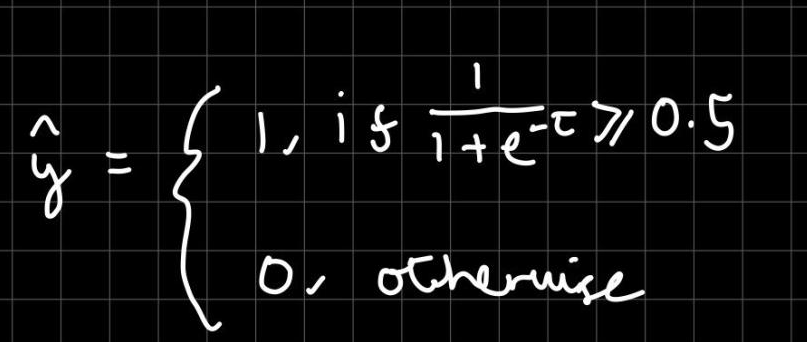 ŷ = { 1, if 1/(1+e^-τ) ⩾ 0.5
0, otherwise